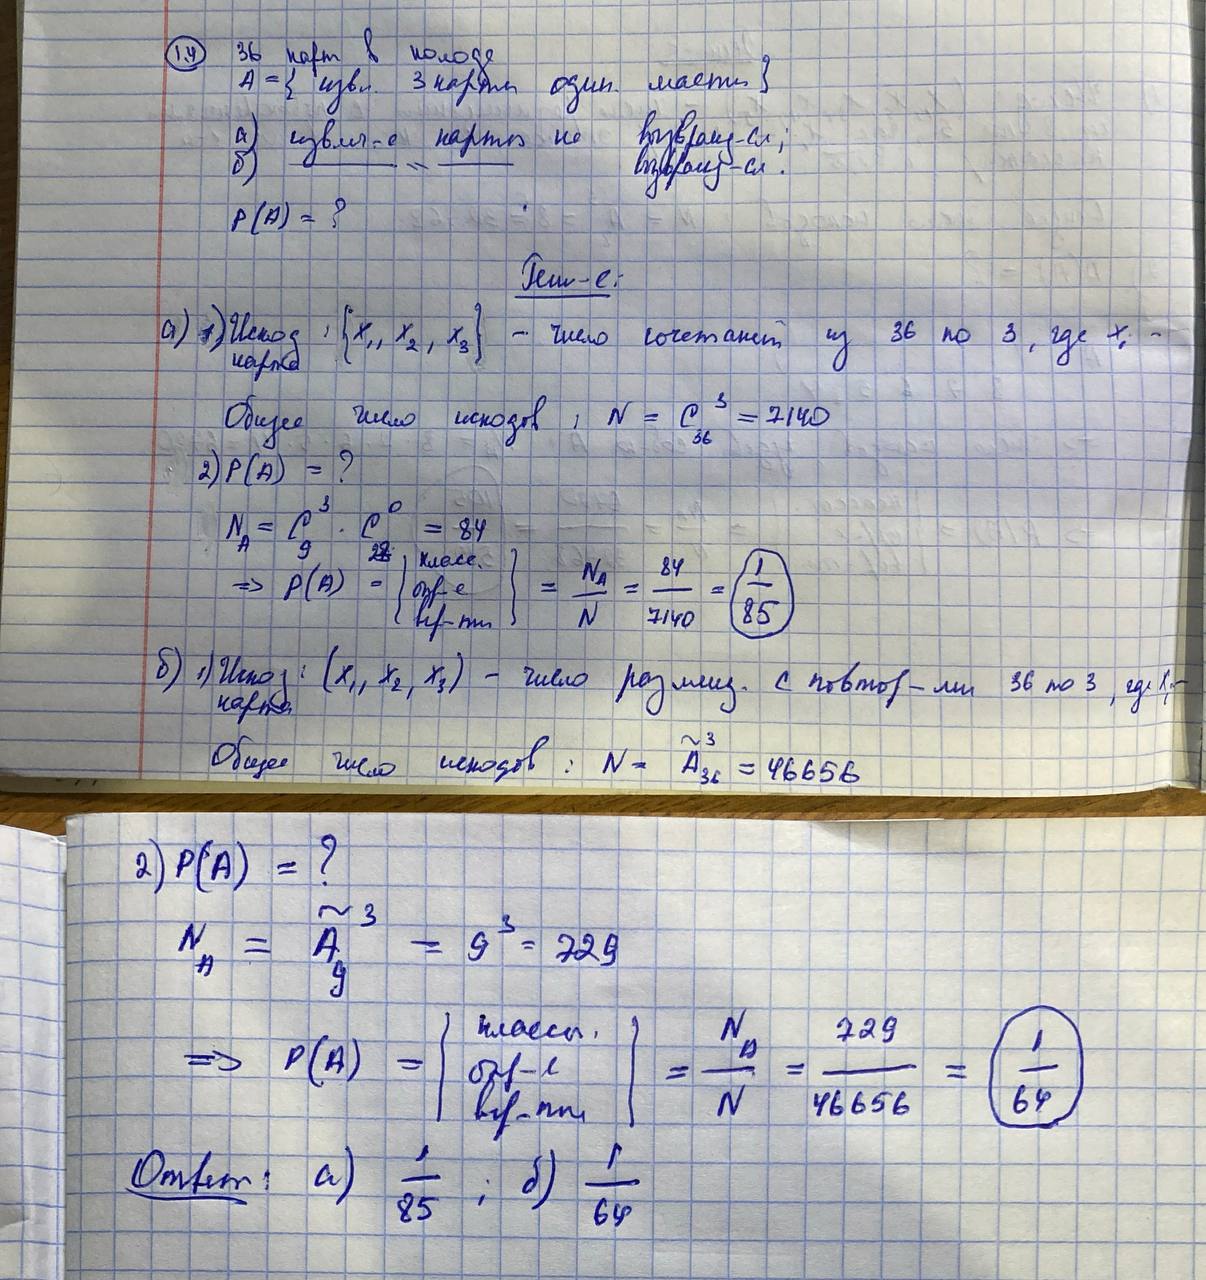 1.4 36 карт в колоде
A = { извл. 3 карты один. масти }
а) извлеч-е карты не возвращ-ся;
б) —〃— возвращ-ся.
P(A) = ?
Реш-е:
а) 1) Исход : {x₁, x₂, x₃} – число сочетаний из 36 по 3, где xᵢ –
карта
Общее число исходов : N = C₃₆³ = 7140
2) P(A) = ?
N_A = C₉³ · C₂₈⁰ = 84
=> P(A) = { класс. опр-е вер-ти } = N_A / N = 84 / 7140 = 1/85
б) 1) Исход : (x₁, x₂, x₃) – число размещ. с повтор-ми 36 по 3, где xᵢ –
карта
Общее число исходов : N = Ã₃₆³ = 46656
2) P(A) = ?
N_A = Ã₉³ = 9³ = 729
=> P(A) = { классич. опр-е вер-ти } = N_A / N = 729 / 46656 = 1/64
Ответ: а) 1/85 ; б) 1/64